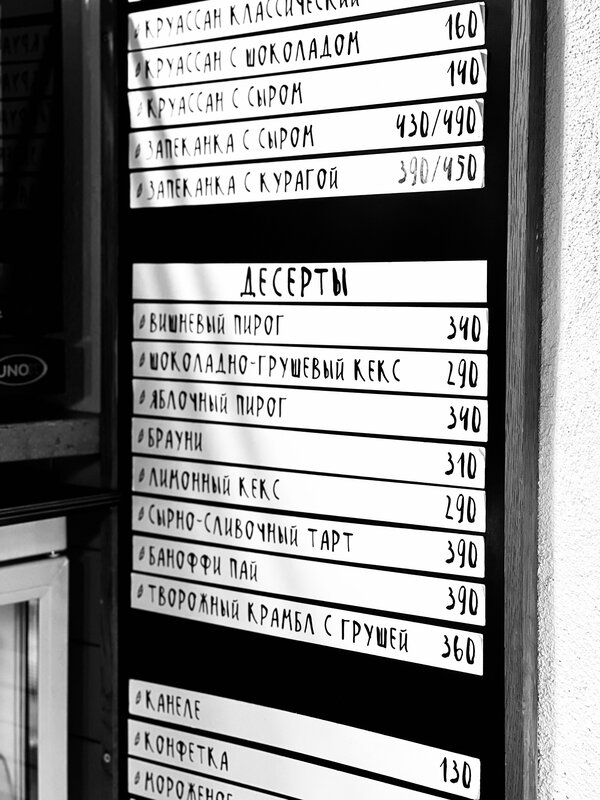 КРУАССАН КЛАССИЧЕСКИЙ
КРУАССАН С ШОКОЛАДОМ 160
КРУАССАН С СЫРОМ 140
ЗАПЕКАНКА С СЫРОМ 430/490
ЗАПЕКАНКА С КУРАГОЙ 390/450
ДЕСЕРТЫ
ВИШНЕВЫЙ ПИРОГ 340
ШОКОЛАДНО-ГРУШЕВЫЙ КЕКС 290
ЯБЛОЧНЫЙ ПИРОГ 340
БРАУНИ 310
ЛИМОННЫЙ КЕКС 290
СЫРНО-СЛИВОЧНЫЙ ТАРТ 390
БАНОФФИ ПАЙ 390
ТВОРОЖНЫЙ КРАМБЛ С ГРУШЕЙ 360
КАНЕЛЕ 130
КОНФЕТКА